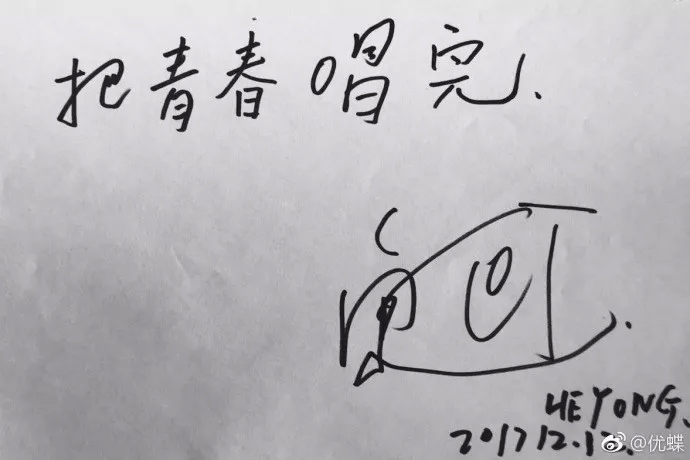 把青春唱完.
HEYONG.
2017 12.12.
@优蝶